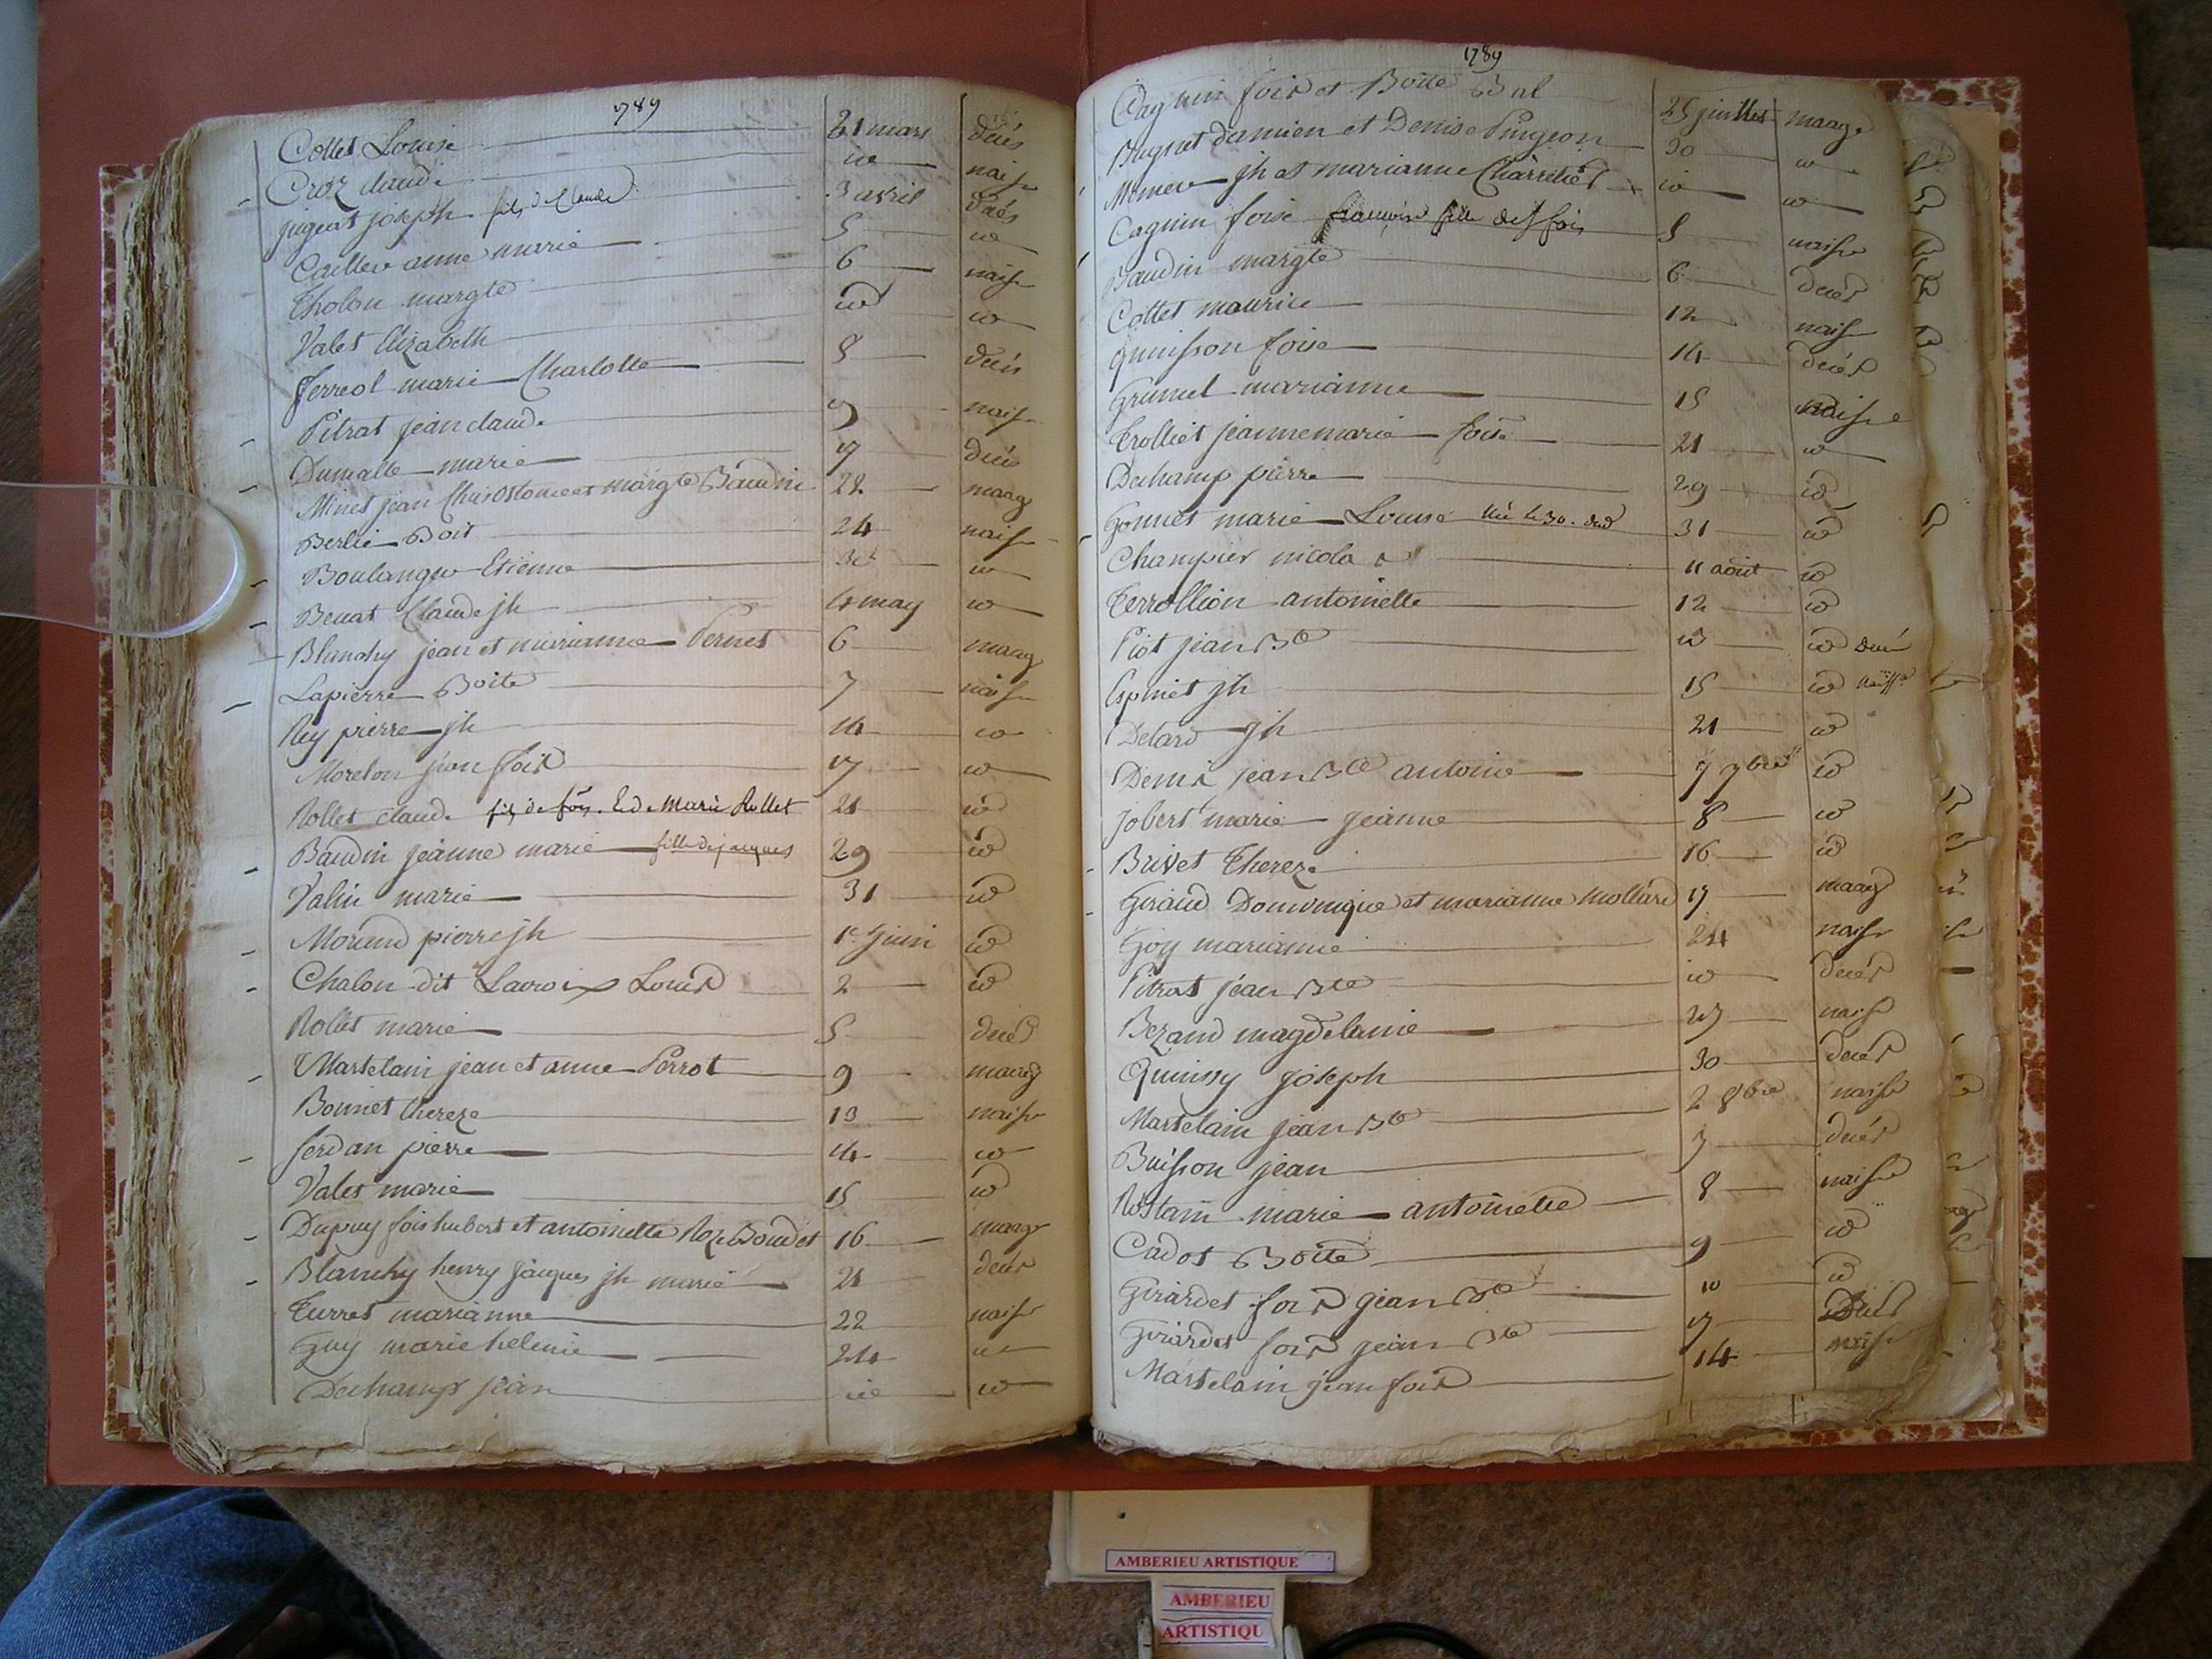 1789
Collet Louise 21 mars decés
Croz claude id naisse
jugeat joseph fils de Claude 3 avril decés
Caillere anne marie 5 id
Tholon margte 6 naisse
Valet Elizabeth id id
Ferreol marie Charlotte 8 decés
Pitrat jean claude 9 naisse
Dumalle marie 17 decés
Minet jean Chrisostome et margte Baudin 22 maage
Berlie Boit 24 naisse
Boulanger Etienne 30 id
Benat Claude jh 4 may id
Blanchy jean et marianne Pernet 6 maage
Lapierre Boite 7 naisse
Rey pierre jh 14 id
Morelon jean fois 17 id
Rollet claude fils de fois. & de Marie Rollet 21 id
Baudin jeanne marie fille de jacques 29 id
Valin marie 31 id
Morand pierre jh 1er juin id
Chalon dit Lacroix Louis 2 id
Rollet marie 5 decés
Martelain jean et anne Perrot 9 maage
Bonnet thereze 13 naisse
ferdan pierre 14 id
Valet marie 15 id
Dupuy fois hubert et antoinette Roze Boudet 16 maage
Blanchy henry jacques jh marie 21 decés
Turret marianne 22 naisse
Guy marie helenne 24 id
Dechamps jean id id
1789
Cagnin fois et Boite Bal 25 juillet maage
Bugnet damien et Denise Pingeon 30 id
Meniere jh et marianne Charretier id id
Cagnin foise francoise fille de fois 5 naisse
Baudin margte 6 decés
Collet maurice 12 naisse
quinisson foise 14 decés
Grumel marianne 15 naisse
Trolliet jeanne marie foise 21 id
Dechamp pierre 29 id
Gonnet marie Louise née le 30. dud 31 id
Champier nicolas 11 août id
Terrollion antoinette 12 id
Piot jean Bte id id Decés
Espinet jh 15 id naisse
Delard jh 21 id
Denis jean Bte antoine 7 7bre id
jobert marie jeanne 8 id
Brivet Thereze 16 id
Giraud Dominique et marianne mollard 17 maage
Goy marianne 24 naisse
Pitrat jean Bte id decés
Bezand magdelaine 27 naisse
Quinssy joseph 30 decés
Martelain jean Bte 2 8bre naisse
Buisson jean 7 decés
Rostain marie antoinette 8 naisse
Cadot Boite 9 id
Girardet fois jean Bte 10 id
Girardet fois jean Bte 17 Decés
Martelain jean fois 14 naisse
AMBERIEU ARTISTIQUE
AMBERIEU
ARTISTIQU